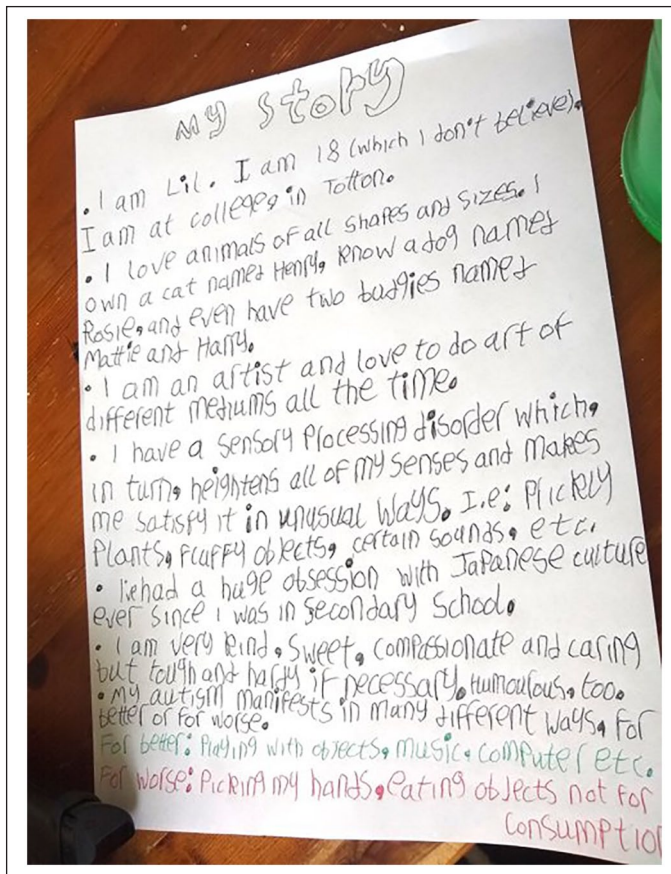 My Story
• I am Lil. I am 18 (which I don't believe).
I am at college, in Totton.
• I love animals of all shapes and sizes. I
own a cat named Henry, know a dog named
Rosie, and even have two budgies named
Mattie and Harry.
• I am an artist and love to do art of
different mediums all the time.
• I have a sensory processing disorder which,
in turn, heightens all of my senses and makes
me satisfy it in unusual ways. I.e: Prickly
plants, fluffy objects, certain sounds, etc.
• I've had a huge obsession with Japanese culture
ever since I was in secondary school.
• I am very kind, sweet, compassionate and caring
but tough and hardy if necessary. Humourous, too.
• My autism manifests in many different ways, for
better or for worse.
For better: Playing with objects, music, computer etc.
For worse: Picking my hands, eating objects not for
consumption